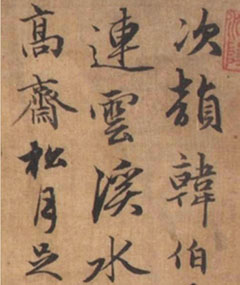 次韻韓伯
連雲溪水
高齋松月足